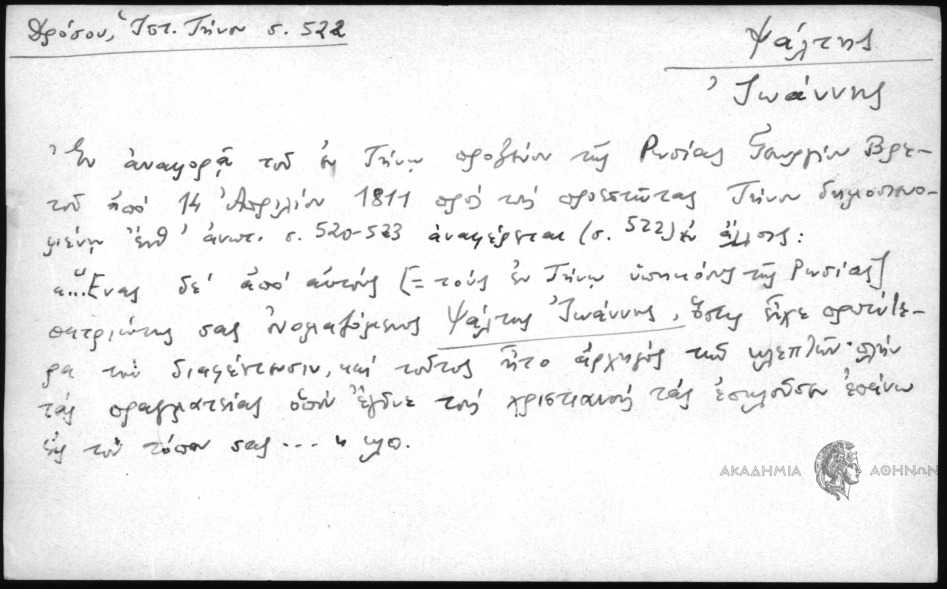 Δρόσου, Ἱστ. Τήνου σ. 522
Ψάλτης
Ἰωάννης
Ἐν ἀναφορᾷ τοῦ ἐν Τήνῳ προξένου τῆς Ρωσίας Γεωργίου Βρε-
τοῦ ἀπό 14 Ἀπριλίου 1811 πρός τούς προεστῶτας Τήνου δημοσιευο-
μένῃ ἔνθ' ἀνωτ. σ. 520-523 ἀναφέρεται (σ. 522) ἐν ἄλλοις:
«...Ἕνας δέ ἀπό αὐτούς [= τούς ἐν Τήνῳ ὑπηκόους τῆς Ρωσίας]
πατριώτης σας ὀνομαζόμενος Ψάλτης Ἰωάννης, ὅστις εἶχε προτύτε-
ρα τήν διαφέντευσιν, καί τοῦτος ἦτο ἀρχηγός τῶν κλεπτῶν πλήν
τάς πραγματείας ὁπού ἔγδυνε τούς χριστιανούς τάς ἐπουλοῦσεν ἐπάνω
εἰς τόν τόπον σας ... » κλπ.
ΑΚΑΔΗΜΙΑ ΑΘΗΝΩΝ